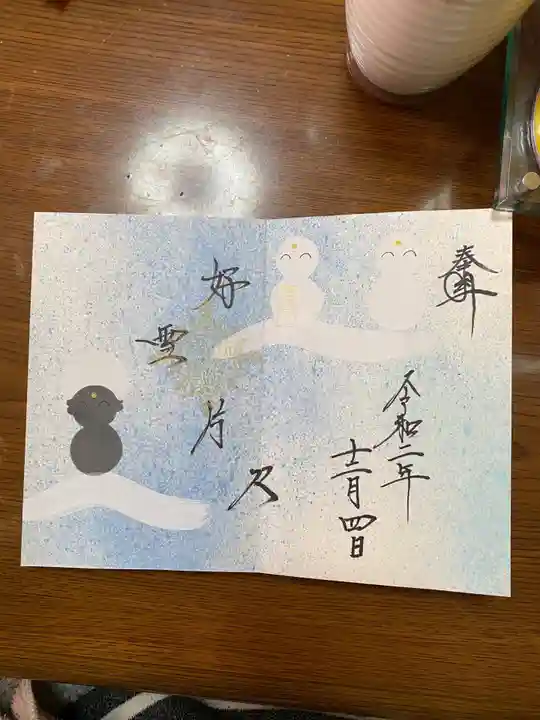 奉拝
令和二年
十二月四日
好
雪
片
々